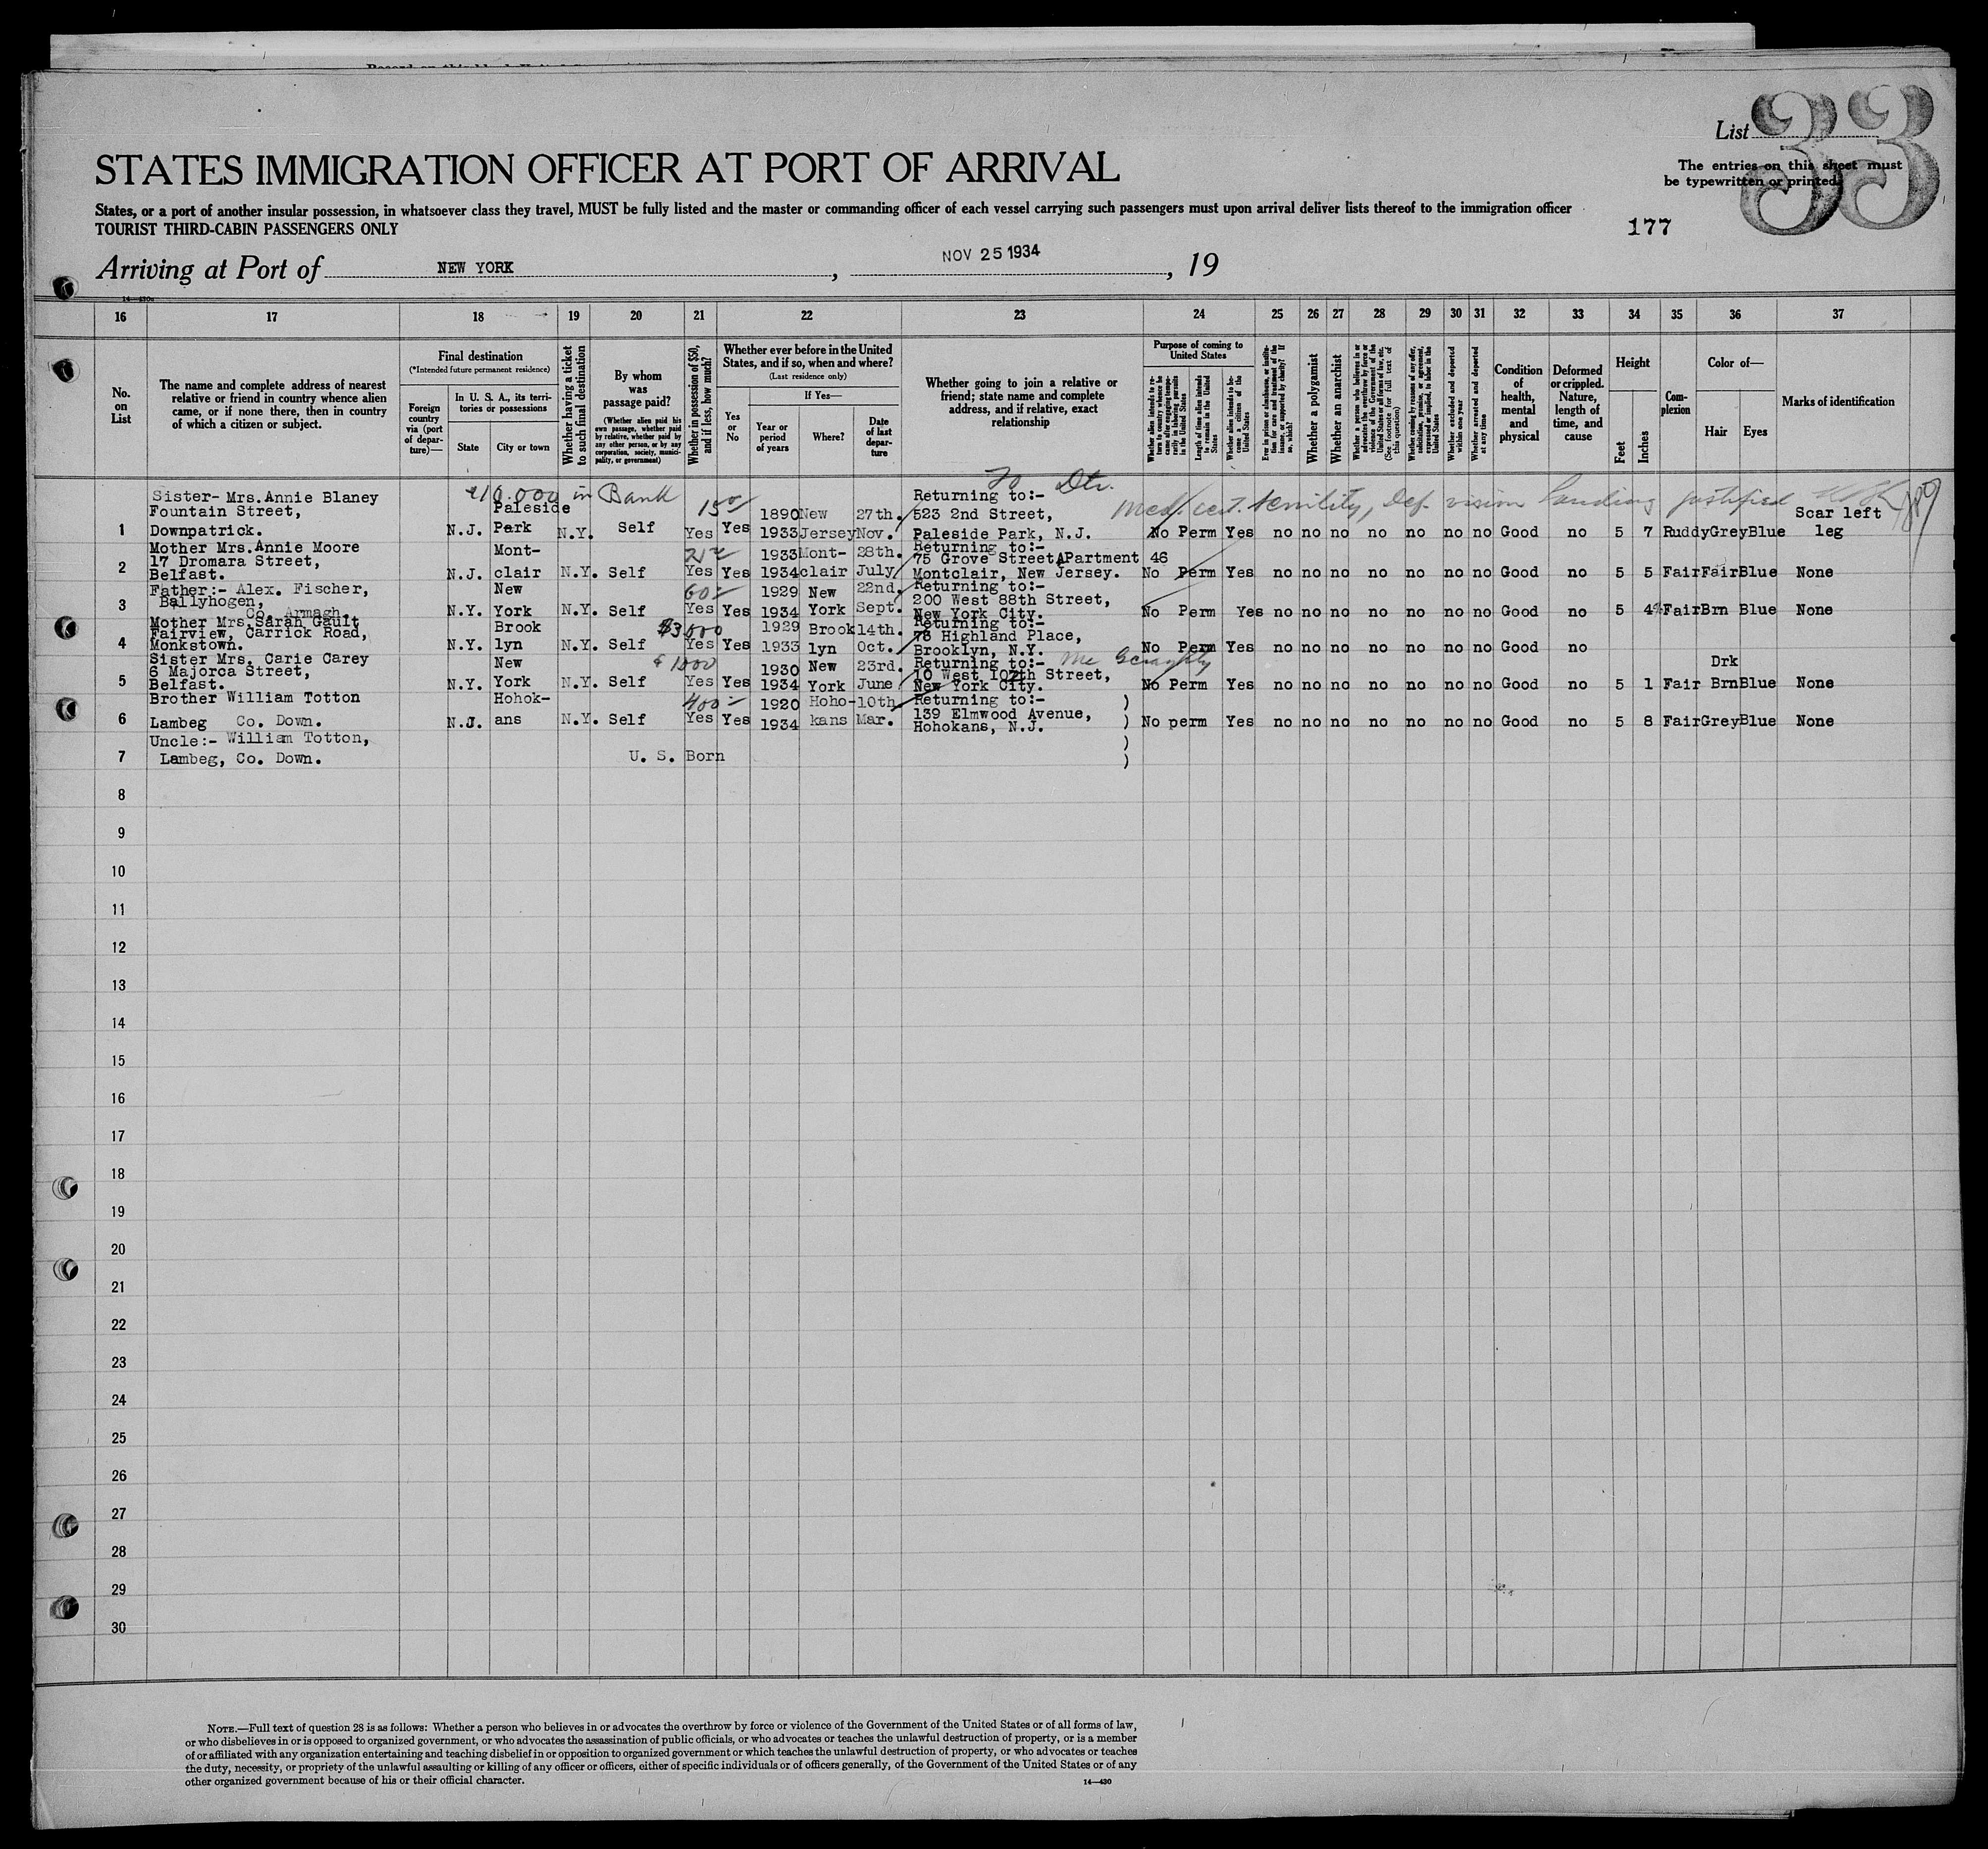 List 33
STATES IMMIGRATION OFFICER AT PORT OF ARRIVAL
The entries on this sheet must
be typewritten or printed
States, or a port of another insular possession, in whatsoever class they travel, MUST be fully listed and the master or commanding officer of each vessel carrying such passengers must upon arrival deliver lists thereof to the immigration officer
TOURIST THIRD-CABIN PASSENGERS ONLY
177
Arriving at Port of NEW YORK, NOV 25 1934, 19
16 17 18 19 20 21 22 23 24 25 26 27 28 29 30 31 32 33 34 35 36 37
No. on List
The name and complete address of nearest
relative or friend in country whence alien
came, or if none there, then in country
of which a citizen or subject.
Final destination
(*Intended future permanent residence)
Foreign country via (port of departure)—
In U. S. A., its territories or possessions
State
City or town
Whether having a ticket to such final destination
By whom was passage paid?
(Whether alien paid his own passage, whether paid by relative, whether paid by any other person, or by any corporation, society, municipality, or government)
Whether in possession of $50, and if less, how much?
Whether ever before in the United States, and if so, when and where?
(Last residence only)
Yes or No
If Yes—
Year or period of years
Where?
Date of last departure
Whether going to join a relative or
friend; state name and complete
address, and if relative, exact
relationship
Purpose of coming to United States
Whether alien intends to return to country whence he came after engaging temporarily in laboring pursuits in the United States
Length of time alien intends to remain in the United States
Whether alien intends to become a citizen of the United States
Ever in prison or almshouse, or institution for care and treatment of the insane, or supported by charity? If so, which?
Whether a polygamist
Whether an anarchist
Whether a person who believes in or advocates the overthrow by force or violence of the Government of the United States or all forms of law, etc. (See footnote for full text of this question)
Whether coming by reasons of any offer, solicitation, promise, or agreement, expressed or implied, to labor in the United States
Whether excluded and deported within one year
Whether arrested and deported at any time
Condition of health, mental and physical
Deformed or crippled. Nature, length of time, and cause
Height
Feet
Inches
Complexion
Color of—
Hair
Eyes
Marks of identification
10.000 in Bank
To Dtr.
Med. cert. senility, Def. vision landing justified
Sister- Mrs.Annie Blaney
Fountain Street,
1 Downpatrick. N.J. Paleside Park N.Y. Self Yes Yes 1890 1933 New Jersey 27th. Nov. Returning to:- 523 2nd Street, Paleside Park, N.J. No Perm Yes no no no no no no no Good no 5 7 Ruddy Grey Blue Scar left leg
Mother Mrs.Annie Moore
17 Dromara Street,
2 Belfast. N.J. Mont-clair N.Y. Self Yes Yes 1933 1934 Mont-clair 28th. July Returning to:- 75 Grove Street APartment 46 Montclair, New Jersey. No Perm Yes no no no no no no no Good no 5 5 Fair Fair Blue None
Father:- Alex. Fischer,
Ballyhogen,
3 Co. Armagh. N.Y. New York N.Y. Self 60 Yes Yes 1929 1934 New York 22nd. Sept. Returning to:- 200 West 88th Street, New York City. No Perm Yes no no no no no no no Good no 5 4½ Fair Brn Blue None
Mother Mrs Sarah Gault
Fairview, Carrick Road,
4 Monkstown. N.Y. Brook lyn N.Y. Self $3000 Yes Yes 1929 1933 Brook lyn 14th. Oct. Returning to:- 78 Highland Place, Brooklyn, N.Y. No Perm Yes no no no no no no no Good no
Sister Mrs. Carie Carey
6 Majorca Street,
5 Belfast. N.Y. New York N.Y. Self 1000 Yes Yes 1930 1934 New York 23rd. June Returning to:- 10 West 107th Street, New York City. No Perm Yes no no no no no no no Good no 5 1 Fair Drk Brn Blue None
Brother William Totton
6 Lambeg Co. Down. N.J. Hohok-ans N.Y. Self 400 Yes Yes 1920 1934 Hoho-kans 10th Mar. Returning to:- 139 Elmwood Avenue, Hohokans, N.J. ) ) No perm Yes no no no no no no no Good no 5 8 Fair Grey Blue None
Uncle:- William Totton, )
7 Lambeg, Co. Down. U. S. Born )
8
9
10
11
12
13
14
15
16
17
18
19
20
21
22
23
24
25
26
27
28
29
30
NOTE.—Full text of question 28 is as follows: Whether a person who believes in or advocates the overthrow by force or violence of the Government of the United States or of all forms of law,
or who disbelieves in or is opposed to organized government, or who advocates the assassination of public officials, or who advocates or teaches the unlawful destruction of property, or is a member
of or affiliated with any organization entertaining and teaching disbelief in or opposition to organized government or which teaches the unlawful destruction of property, or who advocates or teaches
the duty, necessity, or propriety of the unlawful assaulting or killing of any officer or officers, either of specific individuals or of officers generally, of the Government of the United States or of any
other organized government because of his or their official character.
14—430